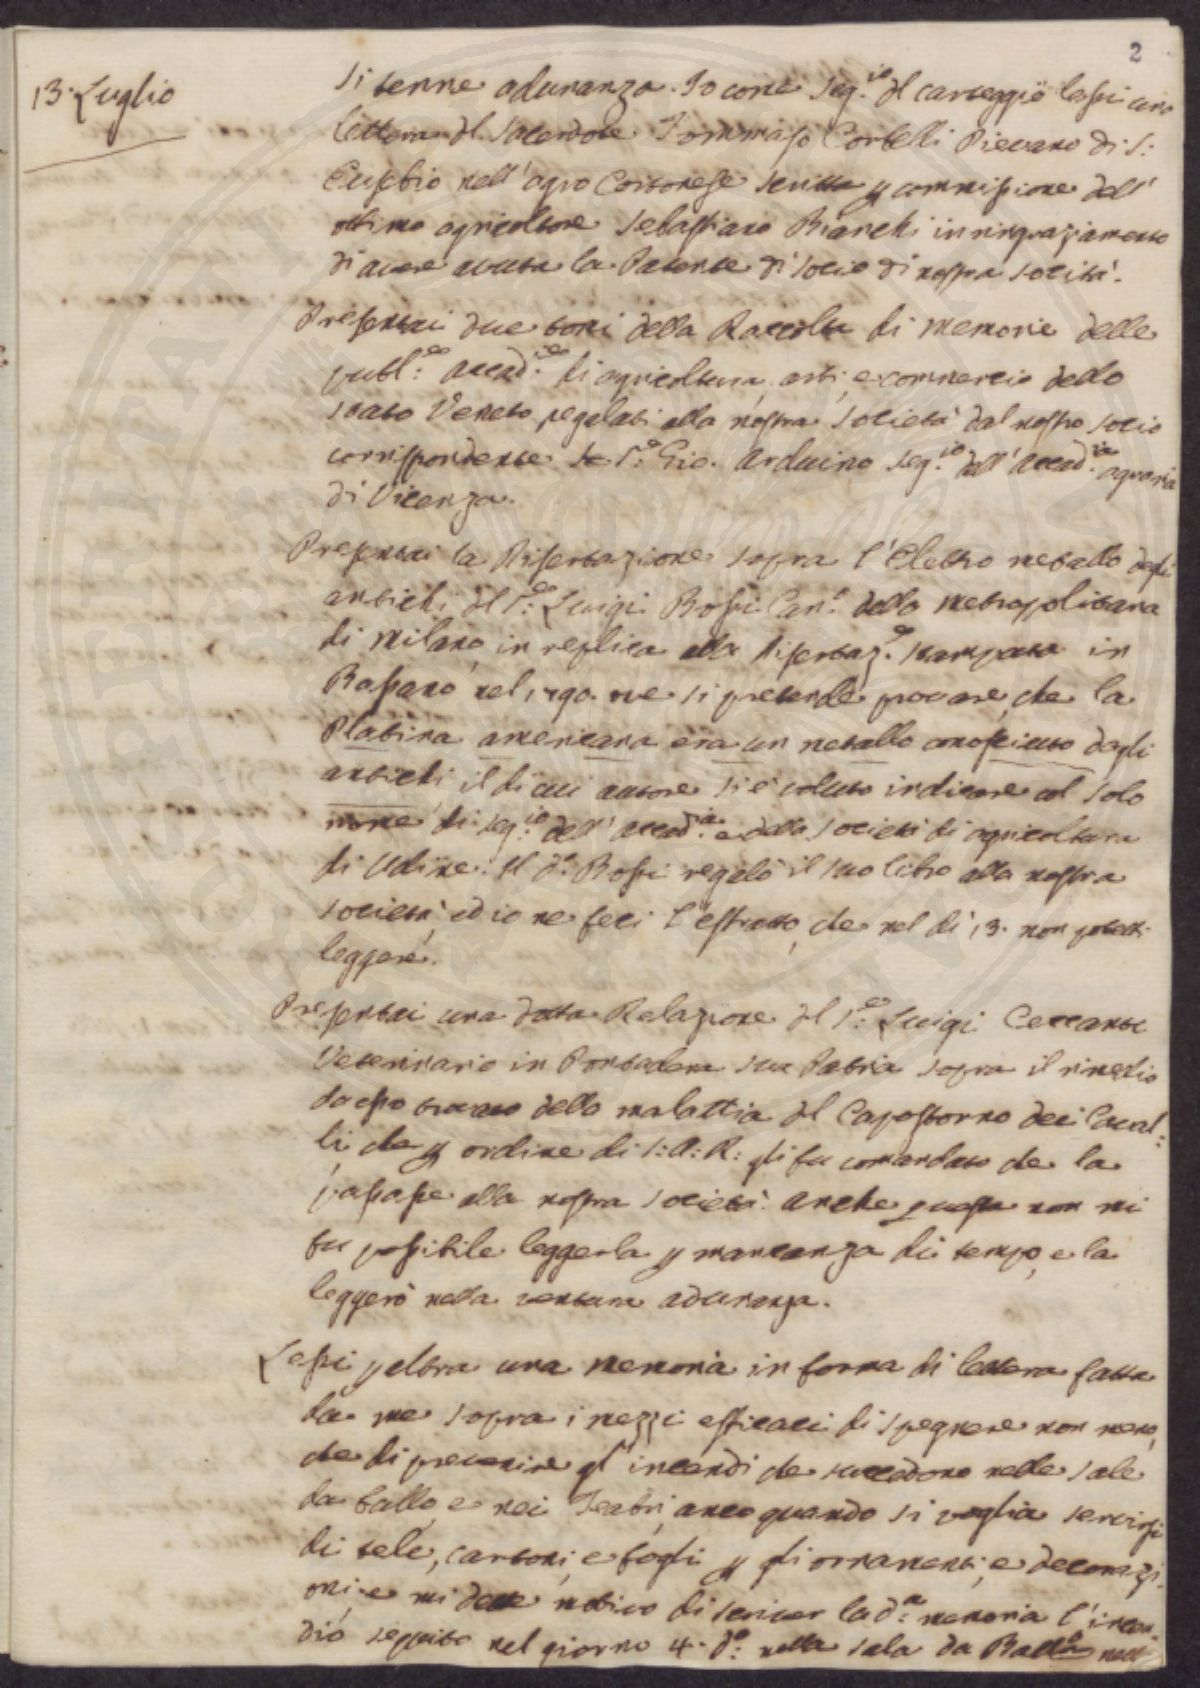 2
13. Luglio
Si tenne adunanza. Io come Seg.io del carteggio lessi una
lettera del Sacerdote Tommaso Corbelli Pievano di S:
Eusebio nell'agro Cortonese scritta p commissione dell'
ottimo agricoltore Sebastiano Bianchi in ringraziamento
di avere avuta la Patente di socio di nostra società.
Presentai due tomi della Raccolta di memorie delle
pubb.e Accad.e di agricoltura, arti, e commercio dello
stato Veneto regalati alla nostra Società dal nostro socio
corrispondente S.e Gio. Arduino Seg.io dell'Accad.ia agraria
di Vicenza.
Presentai la Dissertazione sopra l'Elettro metallo degli
antichi del S.e Luigi Bossi Can.o della metropolitana
di Milano in replica alla Dissertaz.e stampata in
Bassano nel 1790. ove si pretende provare, che la
Platina americana era un metallo conosciuto dagli
antichi, il di cui autore si è voluto indicare col solo
nome di Seg.io dell'Accad.ia e della Società di agricoltura
di Udine. Il d.o Bossi regalò il suo libro alla nostra
Società, ed io ne feci l'estratto, che nel dì 13. non potetti
leggere.
Presentai una dotta Relazione del S.e Luigi Ceccanti
Veterinario in Pontadera sua Patria sopra il rimedio
da esso trovato della malattia del Capostorno dei Caval=
li che p ordine di S: A: R: gli fu comandato che la
passasse alla nostra Società. Anche questa non mi
fu possibile leggerla p mancanza di tempo, e la
leggerò nella ventura adunanza.
Lessi p altro una memoria in forma di lettera fatta
da me sopra i mezzi efficaci di spegnere non meno,
che di prevenire gl'incendi che succedono nelle Sale
da ballo, e nei Teatri, anco quando si voglia servirsi
di tele, cartoni, e fogli p gli ornamenti, e decorazi=
oni, e mi dette motivo di scriver la d.a memoria l'incen=
dio seguito nel giorno 4. d.o nella sala da Ballo